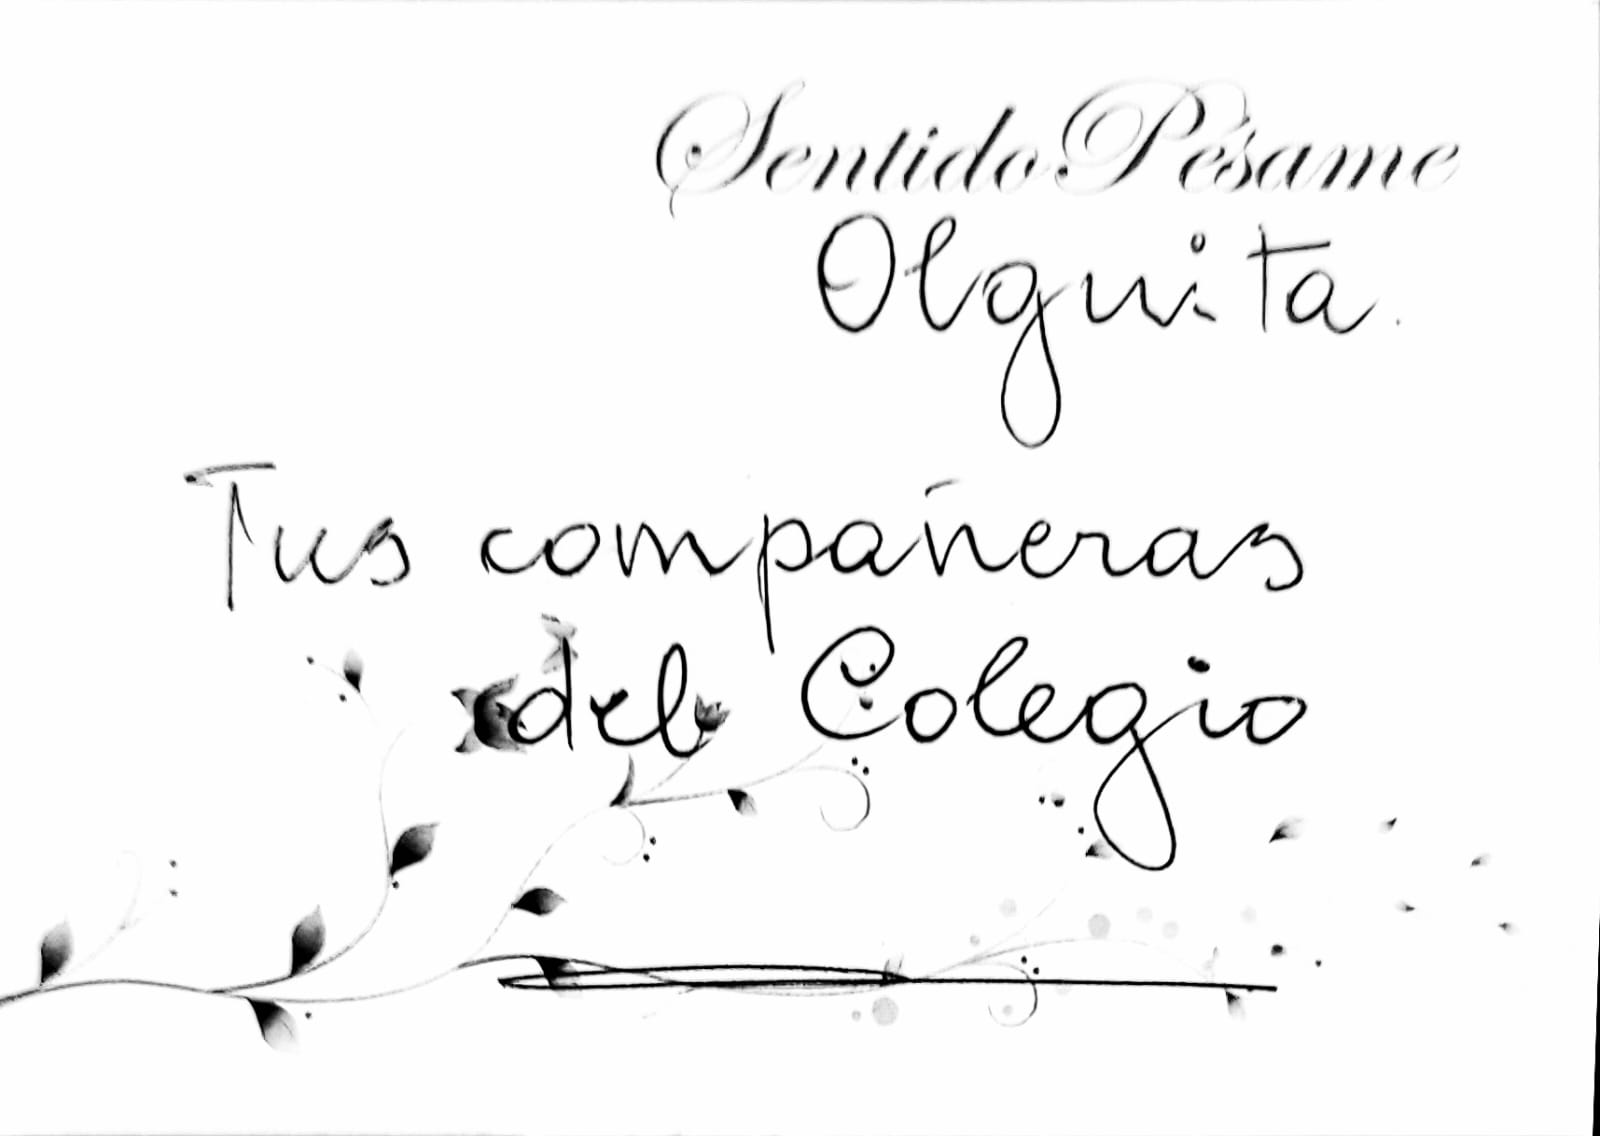 Sentido Pésame
Olguita.
Tus compañeras
del Colegio